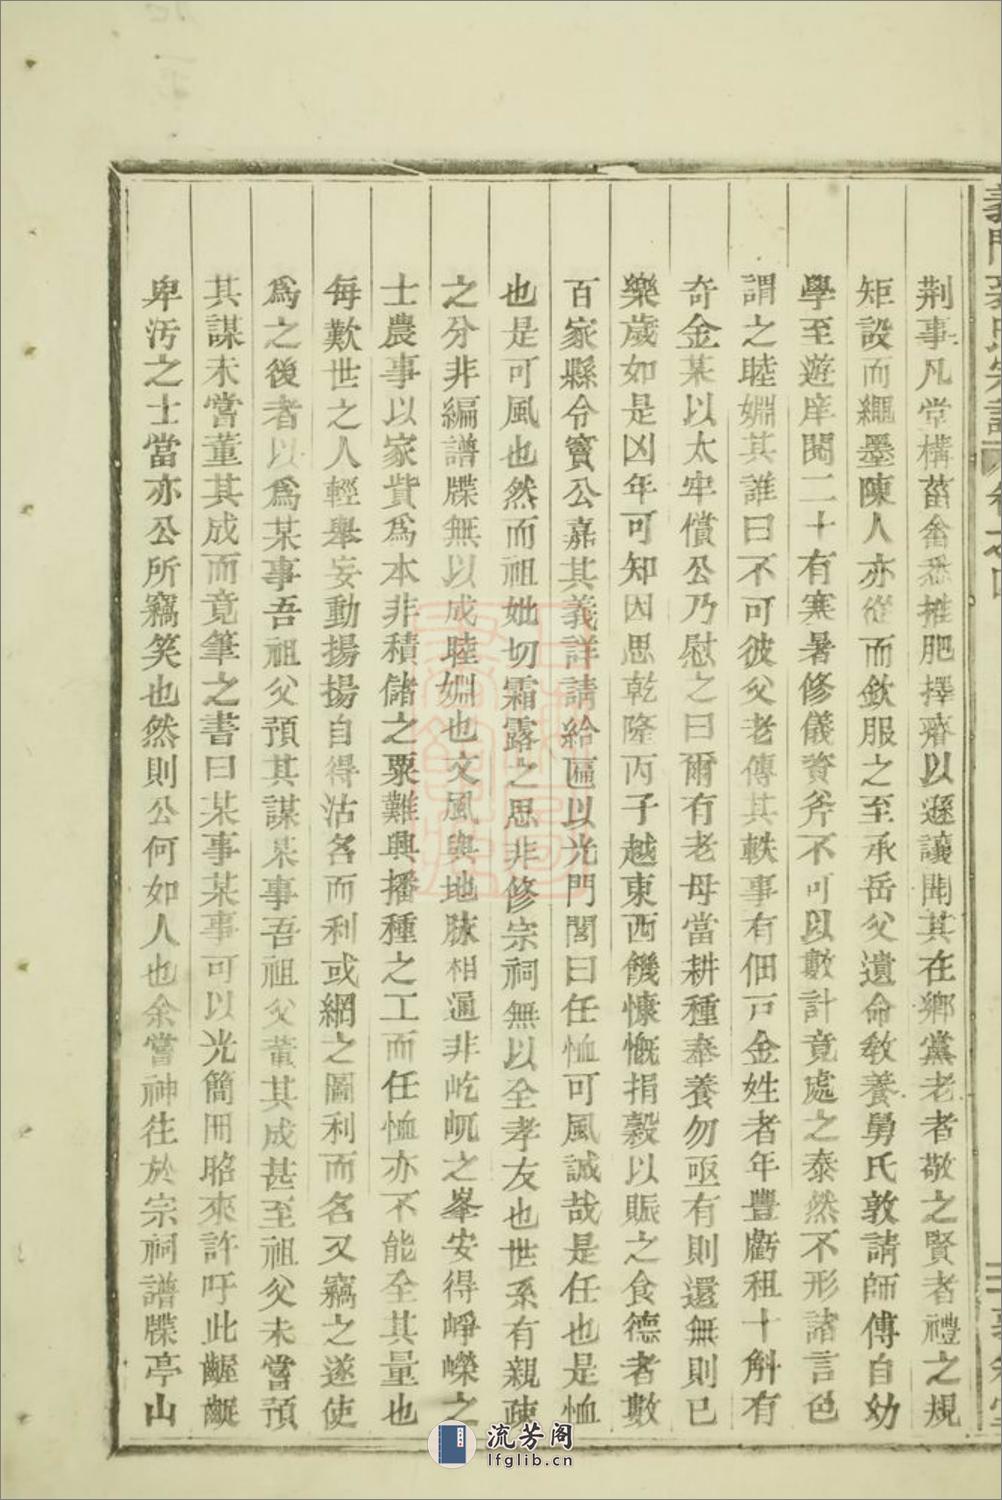 荆事凡堂構菑畬悉推肥擇瘠以遜讓聞其在鄉黨老者敬之賢者禮之規
矩設而繩墨陳人亦從而欽服之至承岳父遺命教養舅氏敦請師傅自幼
學至遊庠閱二十有寒暑修儀資斧不可以數計竟處之泰然不形諸言色
謂之睦婣其誰曰不可彼父老傳其軼事有佃戸金姓者年豐虧租十斛有
奇金某以太牢償公乃慰之曰爾有老母當耕種奉養勿亟有則還無則已
樂歲如是凶年可知因思乾隆丙子越東西饑慷慨捐穀以賑之食德者數
百家縣令竇公嘉其義詳請給匾以光門閭曰任恤可風誠哉是任也是恤
也是可風也然而祖妣切霜露之思非修宗祠無以全孝友也世系有親疎
之分非編譜牒無以成睦婣也文風與地脉相通非屹屼之峯安得崢嶸之
士農事以家貲爲本非積儲之粟難興播種之工而任恤亦不能全其量也
每歎世之人輕舉妄動揚揚自得沽名而利或網之圖利而名又竊之遂使
爲之後者以爲某事吾祖父預其謀某事吾祖父董其成甚至祖父未嘗預
其謀未嘗董其成而竟筆之書曰某事某事可以光簡冊昭來許吁此齷齪
卑汚之士當亦公所竊笑也然則公何如人也余嘗神往於宗祠譜牒亭山
流芳阁
lfglib.cn